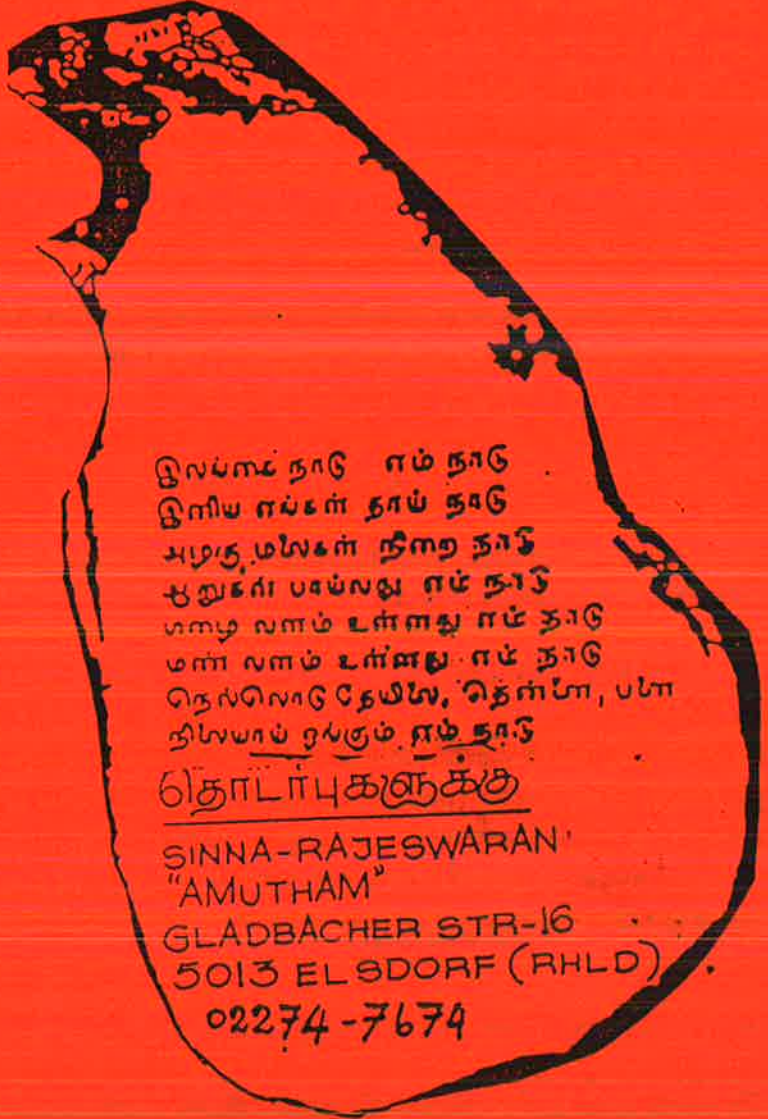 இலங்கை நாடு எம் நாடு
இனிய எங்கள் தாய் நாடு
அழகு மலைகள் நிறை நாடு
ஆறுகள் பாய்வது எம் நாடு
மழை வளம் உள்ளது எம் நாடு
மண் வளம் உள்ளது எம் நாடு
நெல்லொடு தேயிலை, தென்னை, பனை
நிலையாய் ஓங்கும் எம் நாடு
தொடர்புகளுக்கு
SINNA-RAJESWARAN
"AMUTHAM"
GLADBACHER STR-16
5013 ELSDORF (RHLD)
02274-7674